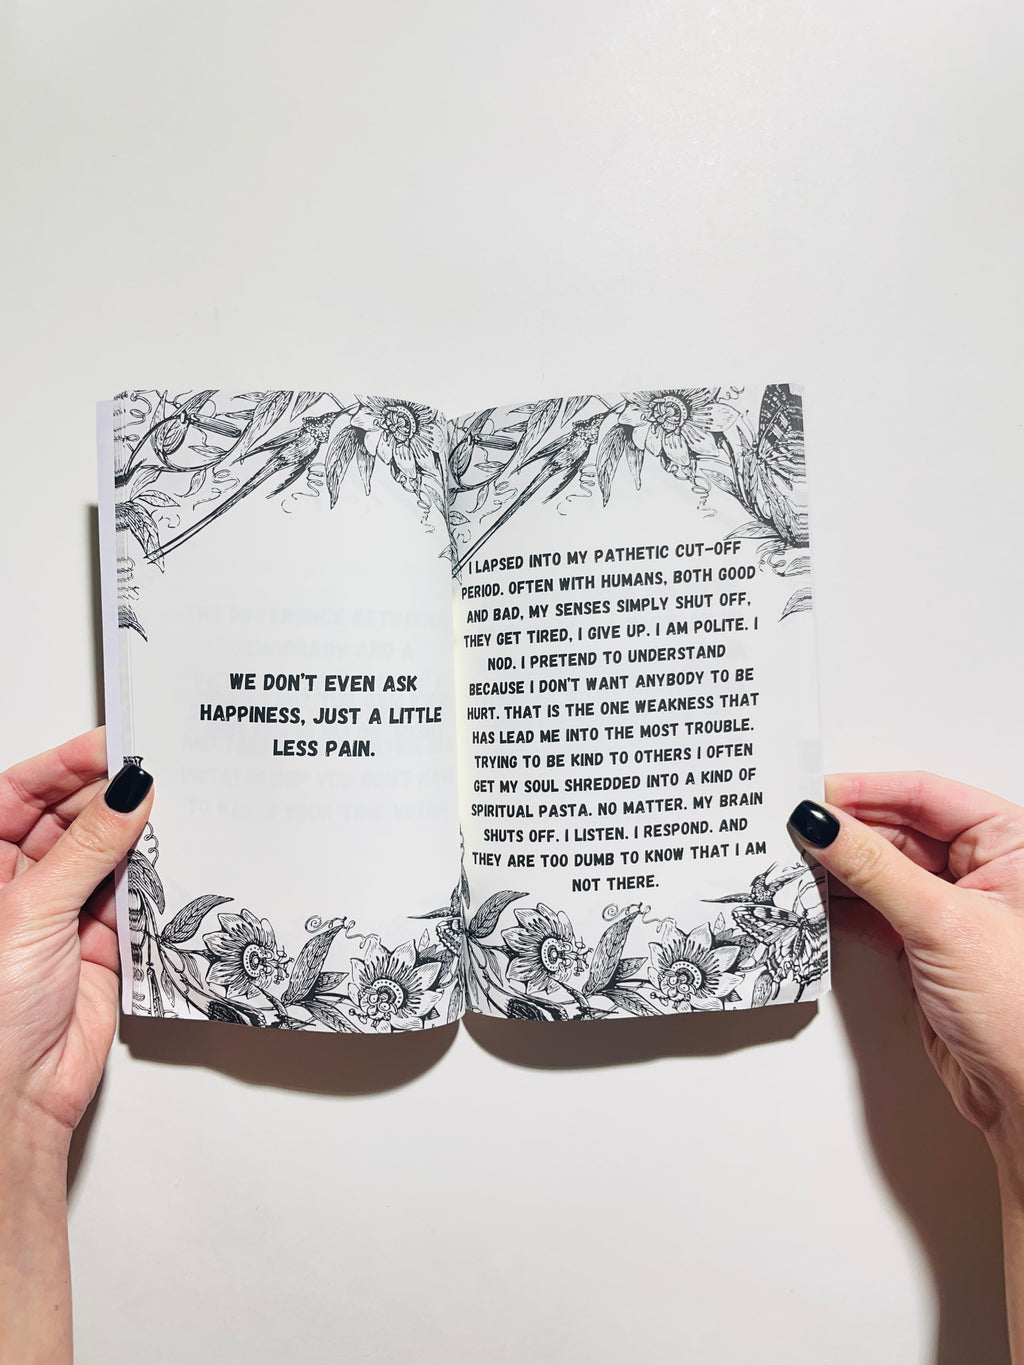 WE DON'T EVEN ASK
HAPPINESS, JUST A LITTLE
LESS PAIN.
I LAPSED INTO MY PATHETIC CUT-OFF
PERIOD. OFTEN WITH HUMANS, BOTH GOOD
AND BAD, MY SENSES SIMPLY SHUT OFF,
THEY GET TIRED, I GIVE UP. I AM POLITE. I
NOD. I PRETEND TO UNDERSTAND
BECAUSE I DON'T WANT ANYBODY TO BE
HURT. THAT IS THE ONE WEAKNESS THAT
HAS LEAD ME INTO THE MOST TROUBLE.
TRYING TO BE KIND TO OTHERS I OFTEN
GET MY SOUL SHREDDED INTO A KIND OF
SPIRITUAL PASTA. NO MATTER. MY BRAIN
SHUTS OFF. I LISTEN. I RESPOND. AND
THEY ARE TOO DUMB TO KNOW THAT I AM
NOT THERE.